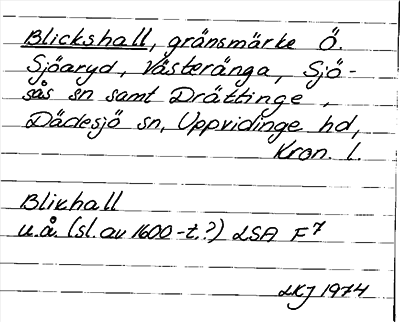 Blickshall, gränsmärke Ö.
Sjöaryd, Västeränga, Sjö-
sås sn samt Drättinge,
Dädesjö sn, Uppvidinge hd,
Kron. l.
Blikhall
u.å. (sl. av 1600-t.?) LSA F7
LKJ 1974